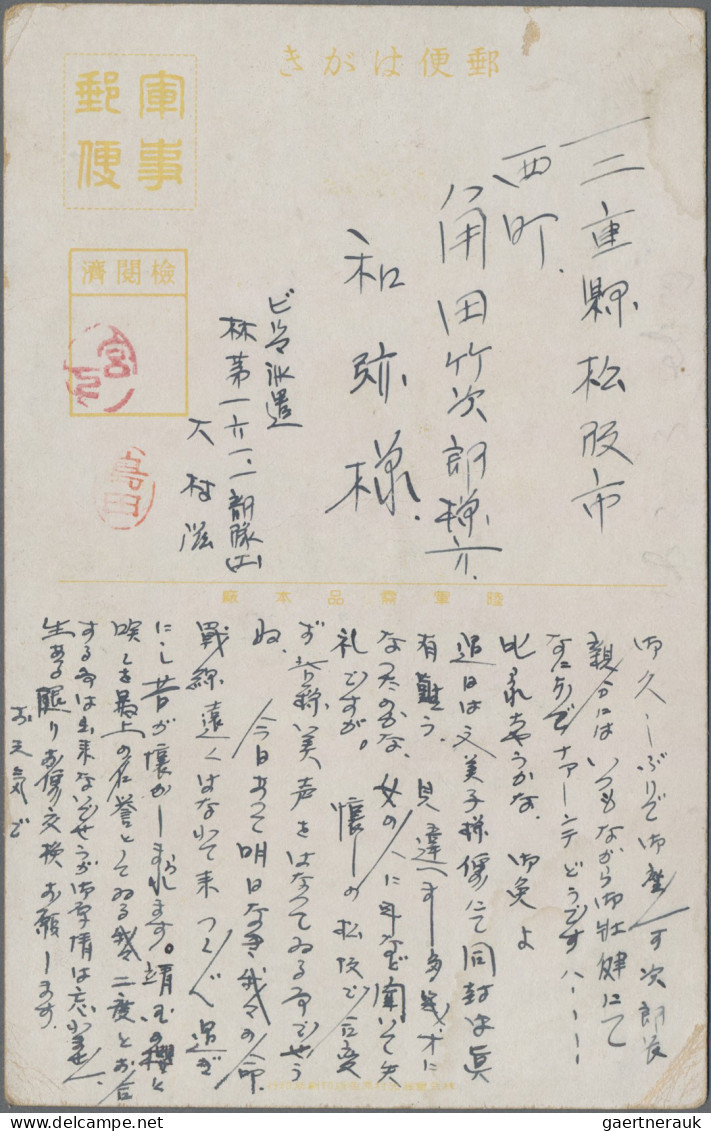 郵便はがき
軍事
郵便
検閲濟
三重縣松阪市
西町
角田竹次郎様方
和弥様
ビルマ派遣
林第一六一二部隊(工)
大村滋
陸軍需品本廠
御久しぶりで御座ゐす次郎長
親分にはいつもながら御壮健にて
なによりでナアーンテどうですハーーー
叱られちやうかな、御免よ
過日は文美子様便にて同封は眞
有難う。見違へます多幾才に
なつたのかな、女の人に年など聞いて失
礼ですが。懐しの松阪で不変
ず美声をはなつてゐる事でせう
ね、今日あつて明日なき我々の命
戦線遠くはなれて来つくづく過ぎ
にし昔が懐かしまれます。靖国の櫻と
咲くを最上の名誉としてゐる我々二度とお会
する事は出来ないでせうが御厚情は忘れません
生ある限りお便交換お願します。
お天気で
gaertnerauk
delcampe.net